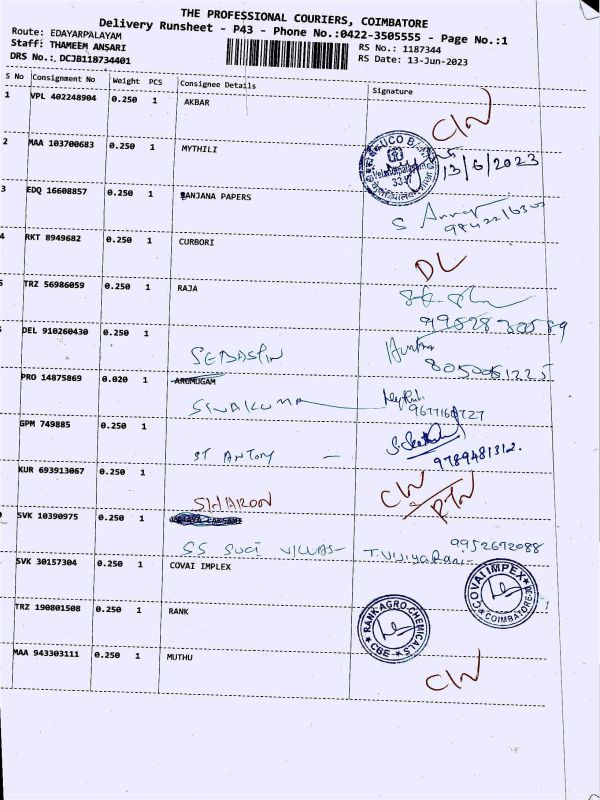 THE PROFESSIONAL COURIERS, COIMBATORE
Delivery Runsheet - P43 - Phone No.:0422-3505555 - Page No.:1
Route: EDAYARPALAYAM
Staff: THAMEEM ANSARI
RS No.: 1187344
DRS No.: DCJB118734401
RS Date: 13-Jun-2023
S No Consignment No Weight PCS Consignee Details Signature
1 VPL 402248904 0.250 1 AKBAR
C/N
2 MAA 103700683 0.250 1 MYTHILI
UCO BANK
13/6/2023
3 EDQ 16608857 0.250 1 SANJANA PAPERS
S
4 RKT 8949682 0.250 1 CURBORI
DL
TRZ 56986059 0.250 1 RAJA
DEL 910260430 0.250 1
SEBASTIN
8050061225
PRO 14875869 0.020 1 ARUMUGAM
SIVAKUMA
GPM 749885 0.250 1
ST ANTONY
9789481312.
KUR 693913067 0.250 1
SHARON
C/N
RTN
SVK 10390975 0.250 1
9952672088
SS
SVK 30157304 0.250 1 COVAI IMPLEX
COVAI IMPEX
COIMBATORE
TRZ 190801508 0.250 1 RANK
RANK AGRO CHEMICALS
CBE
MAA 943303111 0.250 1 MUTHU
C/N